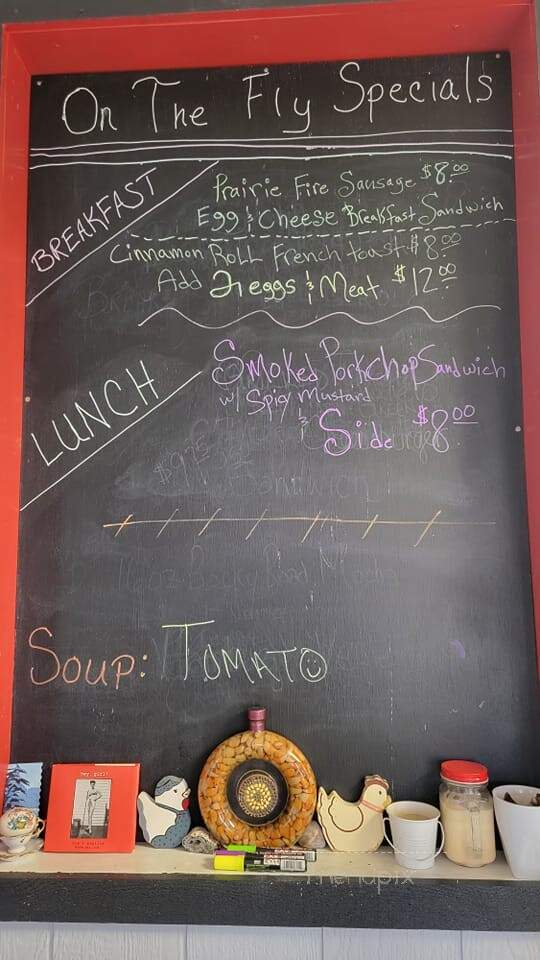 On The Fly Specials
BREAKFAST
Prairie Fire Sausage $8.00
Egg & Cheese Breakfast Sandwich
Cinnamon Roll French toast $8.00
Add 2 eggs & Meat $12.00
LUNCH
Smoked Porkchop Sandwich
w/ Spicy Mustard
& Side $8.00
$9.75
Sandwich
16oz Rocky Road Mocha
Soup: TOMATO
hey, girl!
menupix